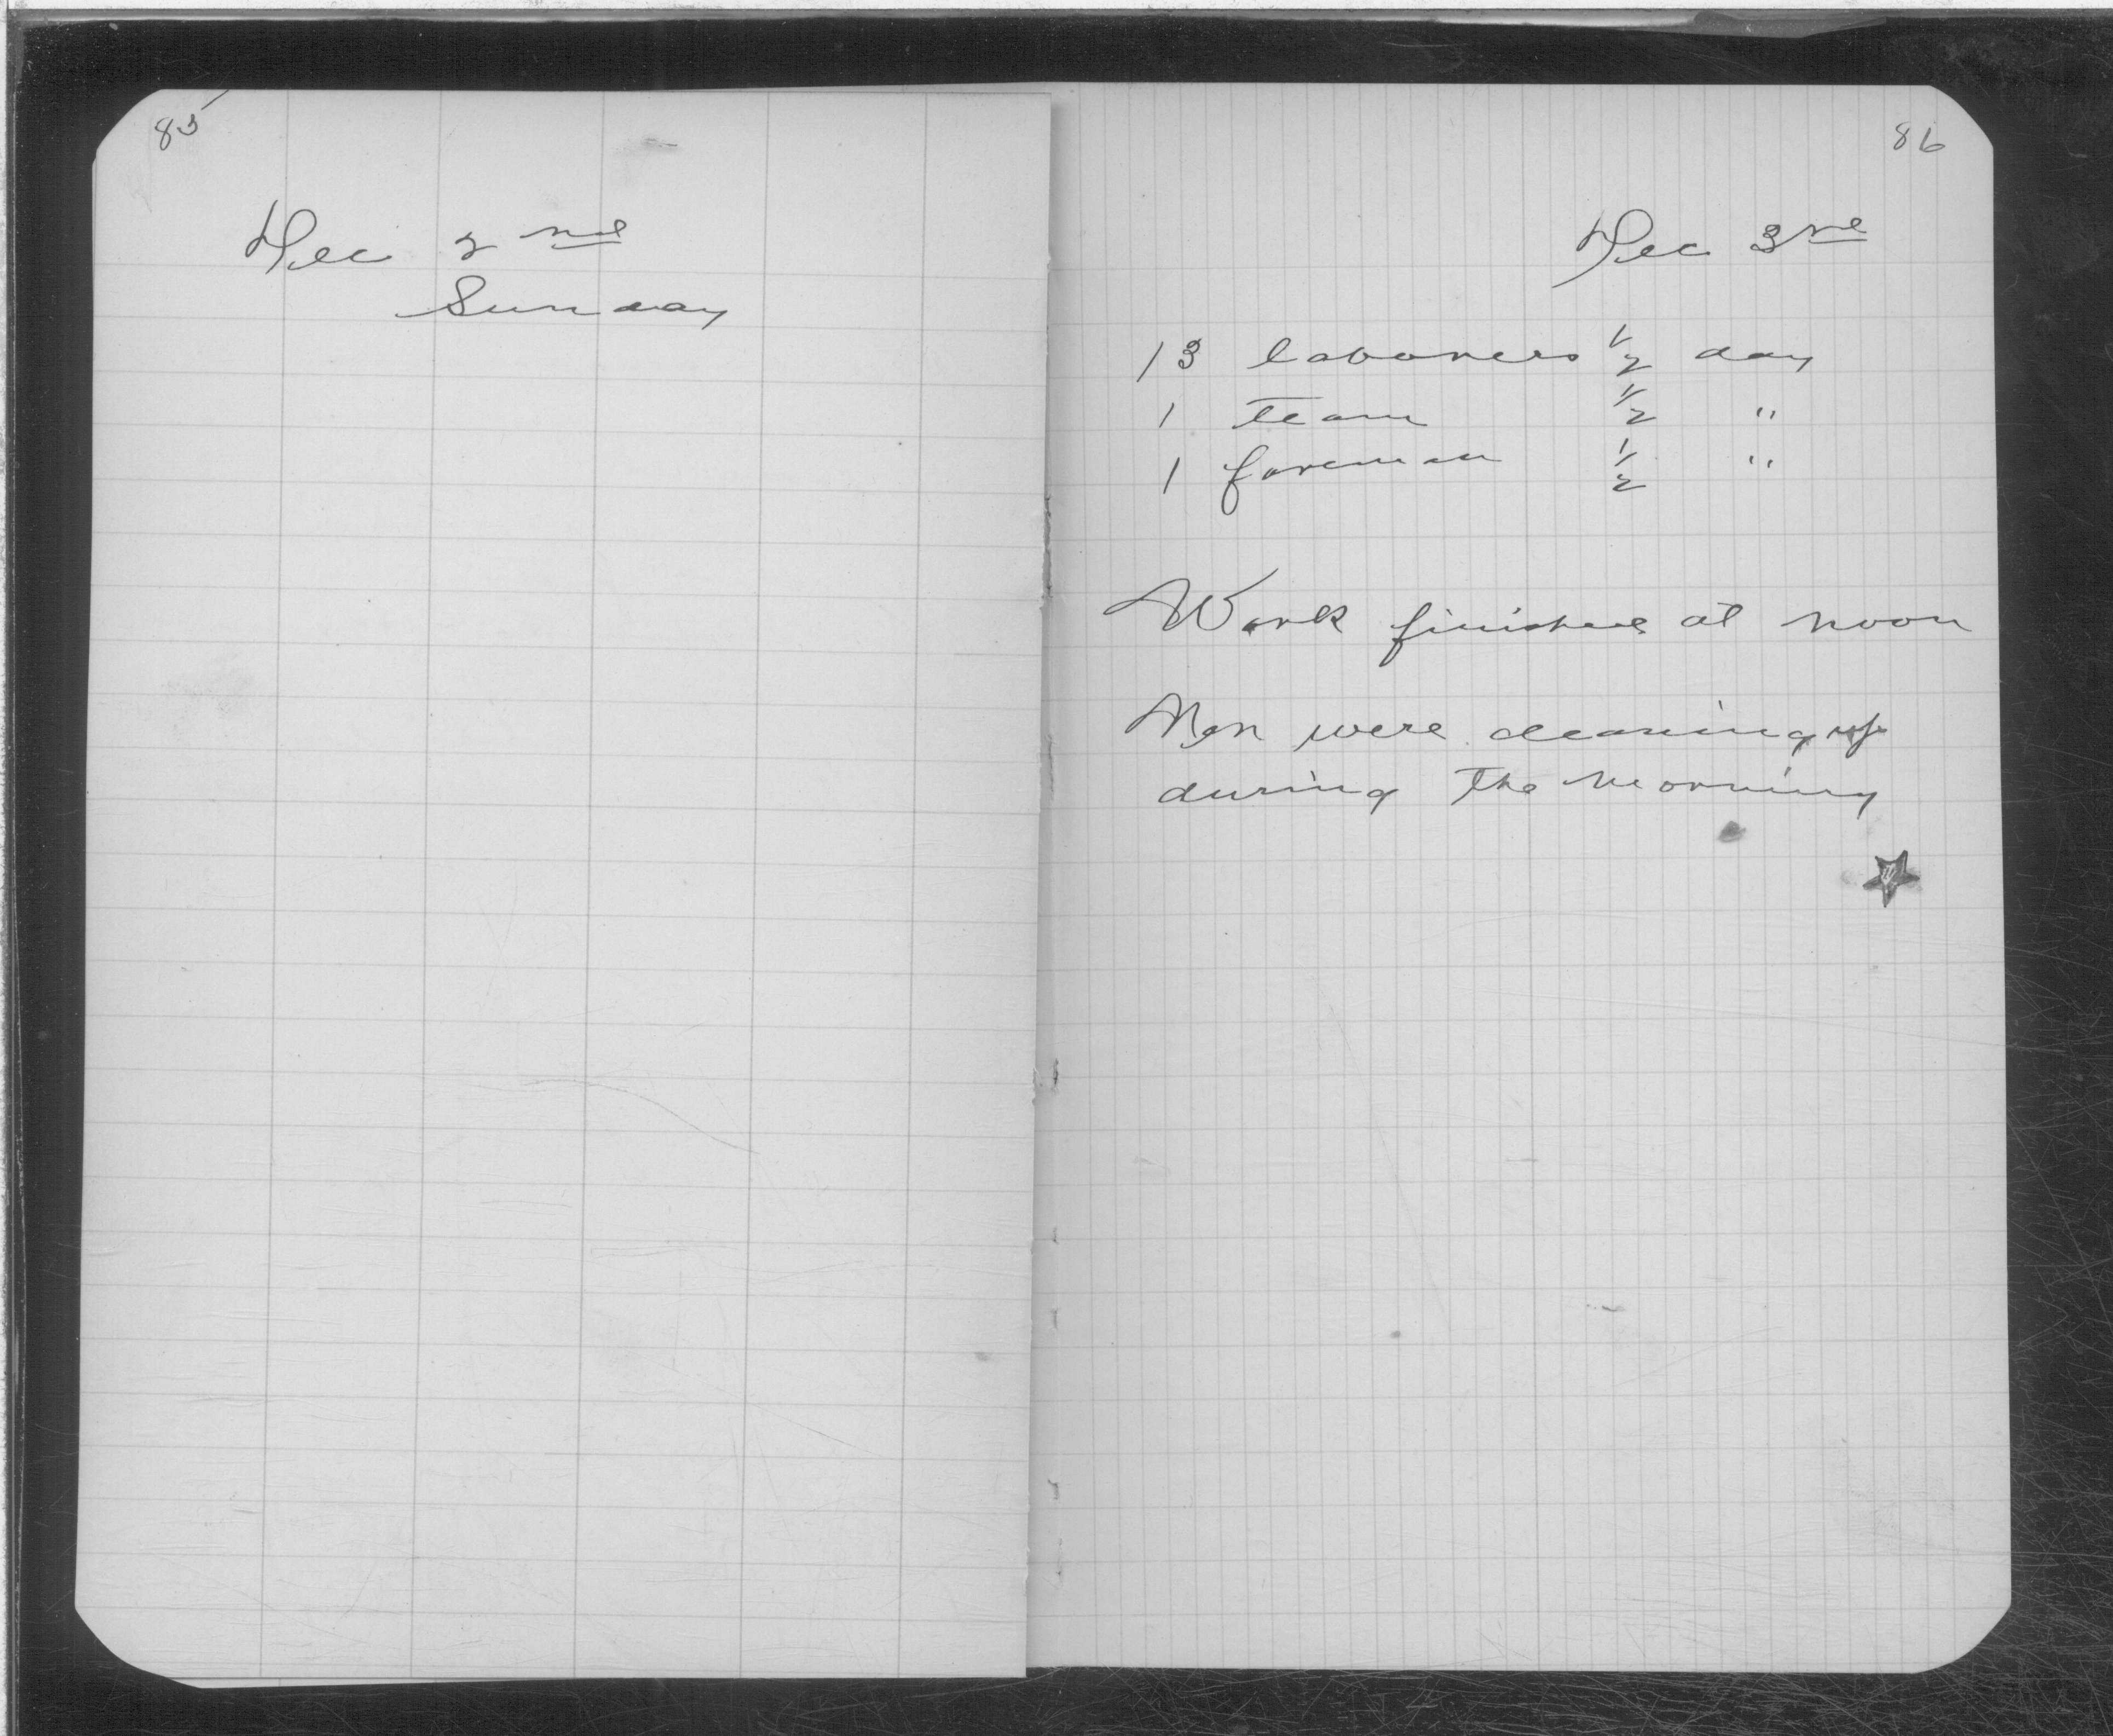 85
Dec 2nd
Sunday
86
Dec 3rd
13 laborers 1/2 day
1 team 1/2 "
1 foreman 1/2 "
Work finished at noon
Men were cleaning up
during the morning